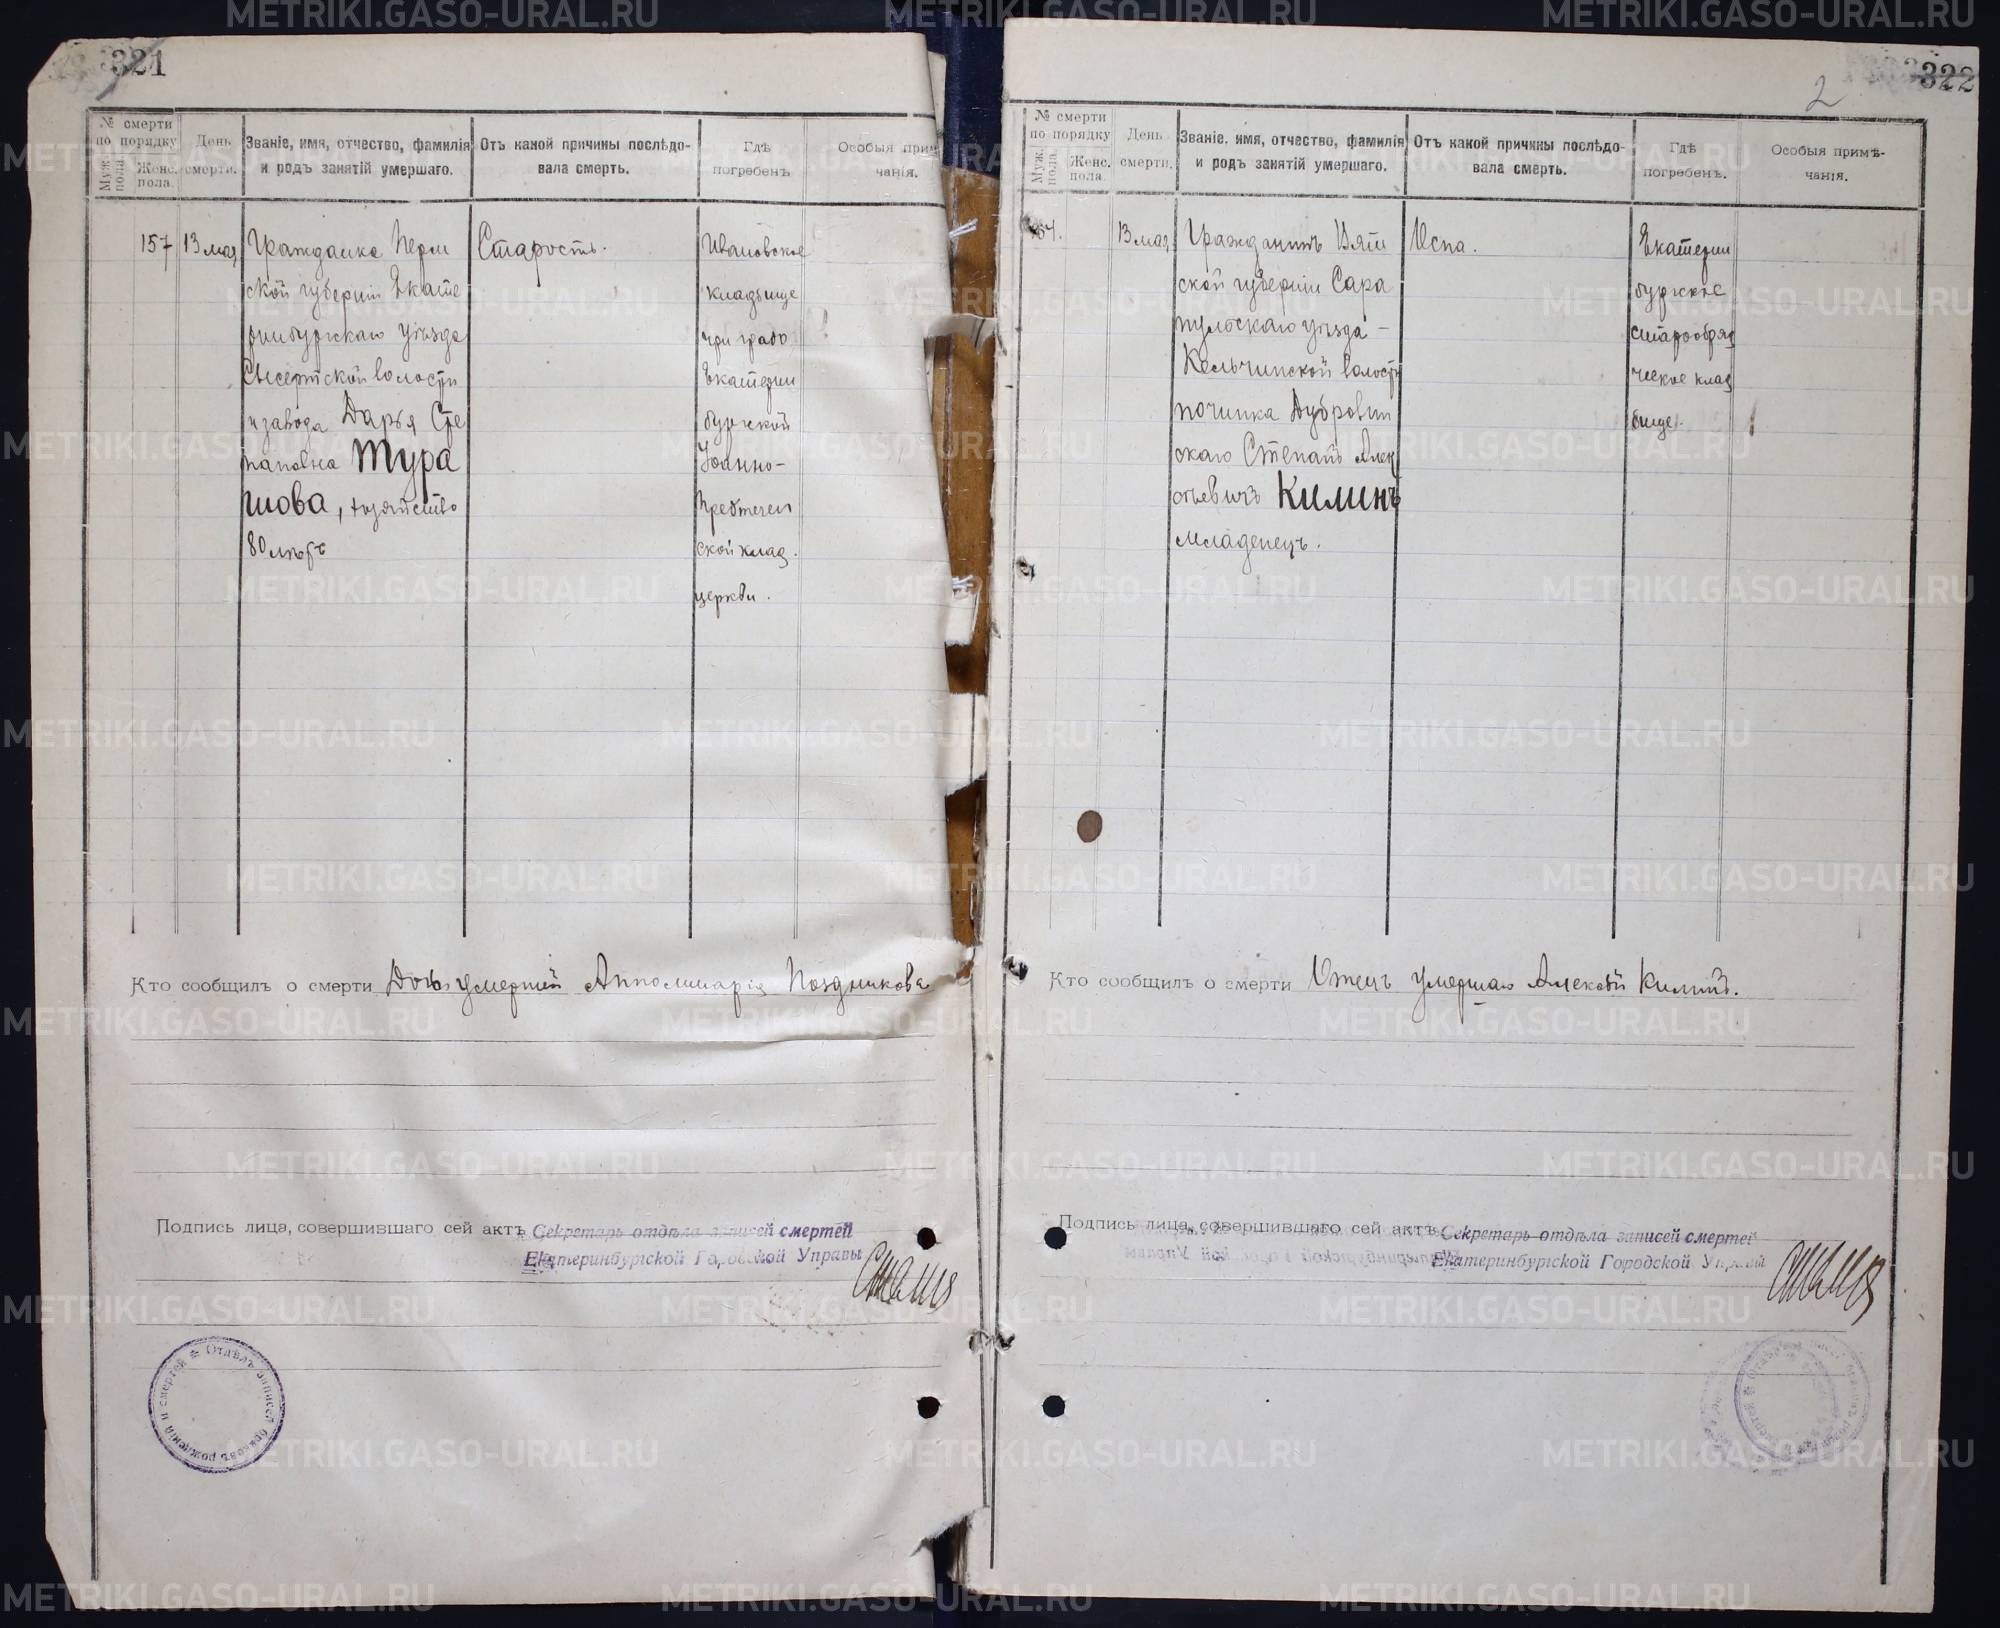 321
№ смерти
по порядку
Муж. пола.
Женс. пола.
День смерти.
Званіе, имя, отчество, фамилія
и родъ занятій умершаго.
Отъ какой причины послѣдо-
вала смерть.
Гдѣ
погребенъ
Особыя прим
чанія.
157
13 мая
Гражданка Перм
ской губерніи Екате
ринбургскаго уѣзда
Сысертской волости
и завода Дарья Сте
пановна Тура
шова, хозяйство
80 лѣтъ
Старость.
Ивановское
кладбище
при градо
Екатерин
бургской
Іоанно-
Предтечен
ской клад.
церкви.
Кто сообщилъ о смерти Дочь умершей Апполинарія Поздникова
Подпись лица, совершившаго сей актъ Секретарь отдѣла записей смертей
Екатеринбургской Городской Управы
Отдѣлъ записей браковъ рожденій и смертей
322
2
№ смерти
по порядку
Муж. пола.
Женс. пола.
День
смерти.
Званіе, имя, отчество, фамилія
и родъ занятій умершаго.
Отъ какой причины послѣдо-
вала смерть.
Гдѣ
погребенъ.
Особыя примѣ-
чанія.
13 мая
Гражданинъ Вят
ской губерніи Сара
пульскаго уѣзда -
Кельчинской волости
починка Дубровин
скаго Степанъ Алек
сѣевичъ Килинъ
младенецъ.
Оспа.
Екатерин
бургское
старообряд
ческое клад
бище.
Кто сообщилъ о смерти Отецъ умершаго Алексѣй Килинъ.
Подпись лица, совершившаго сей актъ Секретарь отдѣла записей смертей
Екатеринбургской Городской Управы
METRIKI.GASO-URAL.RU